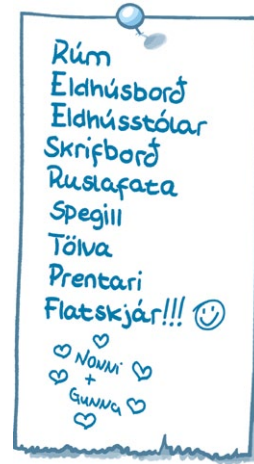 Rúm
Eldhúsborð
Eldhússtólar
Skrifborð
Ruslafata
Spegill
Tölva
Prentari
Flatskjár!!!
Nonni
+
Gunna